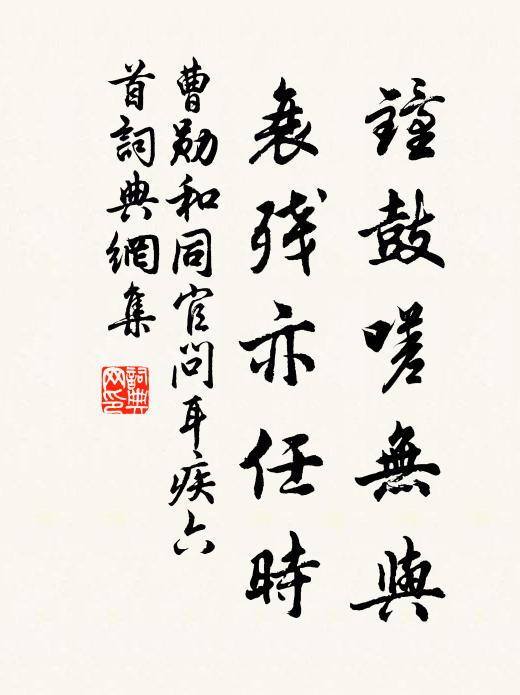 鐘鼓嗟無與
衰殘亦任時
曹勛和同官問耳疾六
首詞典網集
詞典
网印